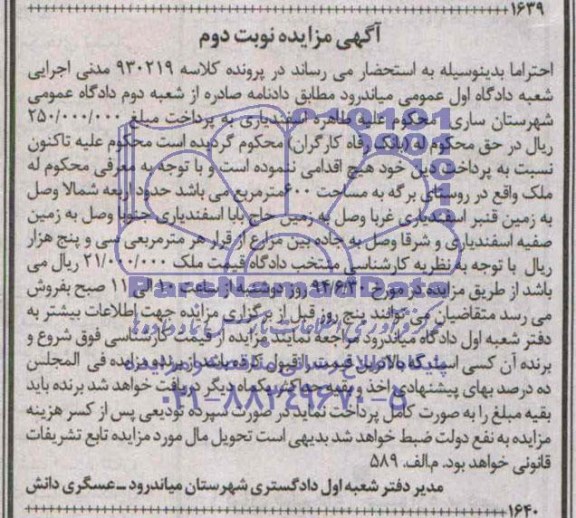 ۱۶۳۹
آگهی مزایده نوبت دوم
احتراما بدینوسیله به استحضار می رساند در پرونده کلاسه ۹۳۰۲۱۹ مدنی اجرایی
شعبه دادگاه اول عمومی میاندرود مطابق دادنامه صادره از شعبه دوم دادگاه عمومی
شهرستان ساری محکوم علیه طاهره اسفندیاری به پرداخت مبلغ ۲۵۰/۰۰۰/۰۰۰
ریال در حق محکوم له (بانک رفاه کارگران) محکوم گردیده است محکوم علیه تاکنون
نسبت به پرداخت دین خود هیچ اقدامی ننموده است و با توجه به معرفی محکوم له
ملک واقع در روستای برگه به مساحت ۶۰۰مترمربع می باشد حدود اربعه شمالا وصل
به زمین قنبر اسفندیاری غربا وصل به زمین حاج بابا اسفندیاری جنوبا وصل به زمین
صفیه اسفندیاری و شرقا وصل به جاده بین مزارع از قرار هر مترمربعی سی و پنج هزار
ریال با توجه به نظریه کارشناسی منتخب دادگاه قیمت ملک ۲۱/۰۰۰/۰۰۰ ریال می
باشد از طریق مزایده در مورخ ۹۴/۶/۳۰ روز دوشنبه از ساعت ۱۰ الی ۱۱ صبح بفروش
می رسد متقاضیان می توانند پنج روز قبل از برگزاری مزایده جهت اطلاعات بیشتر به
دفتر شعبه اول دادگاه میاندرود مراجعه نمایند مزایده از قیمت کارشناسی فوق شروع و
برنده آن کسی است که بالاترین قیمت را قبول کرده باشد از برنده مزایده فی المجلس
ده درصد بهای پیشنهادی اخذ و بقیه حداکثر یکماه دیگر دریافت خواهد شد برنده باید
بقیه مبلغ را به صورت کامل پرداخت نماید در صورت سپرده تودیعی پس از کسر هزینه
مزایده به نفع دولت ضبط خواهد شد بدیهی است تحویل مال مورد مزایده تابع تشریفات
قانونی خواهد بود. م/الف ۵۸۹
مدیر دفتر شعبه اول دادگستری شهرستان میاندرود ــ عسگری دانش
۱۶۴۰
ParsNamadData
۰۲۱-۸۸۳۴۹۶۷۰-۵